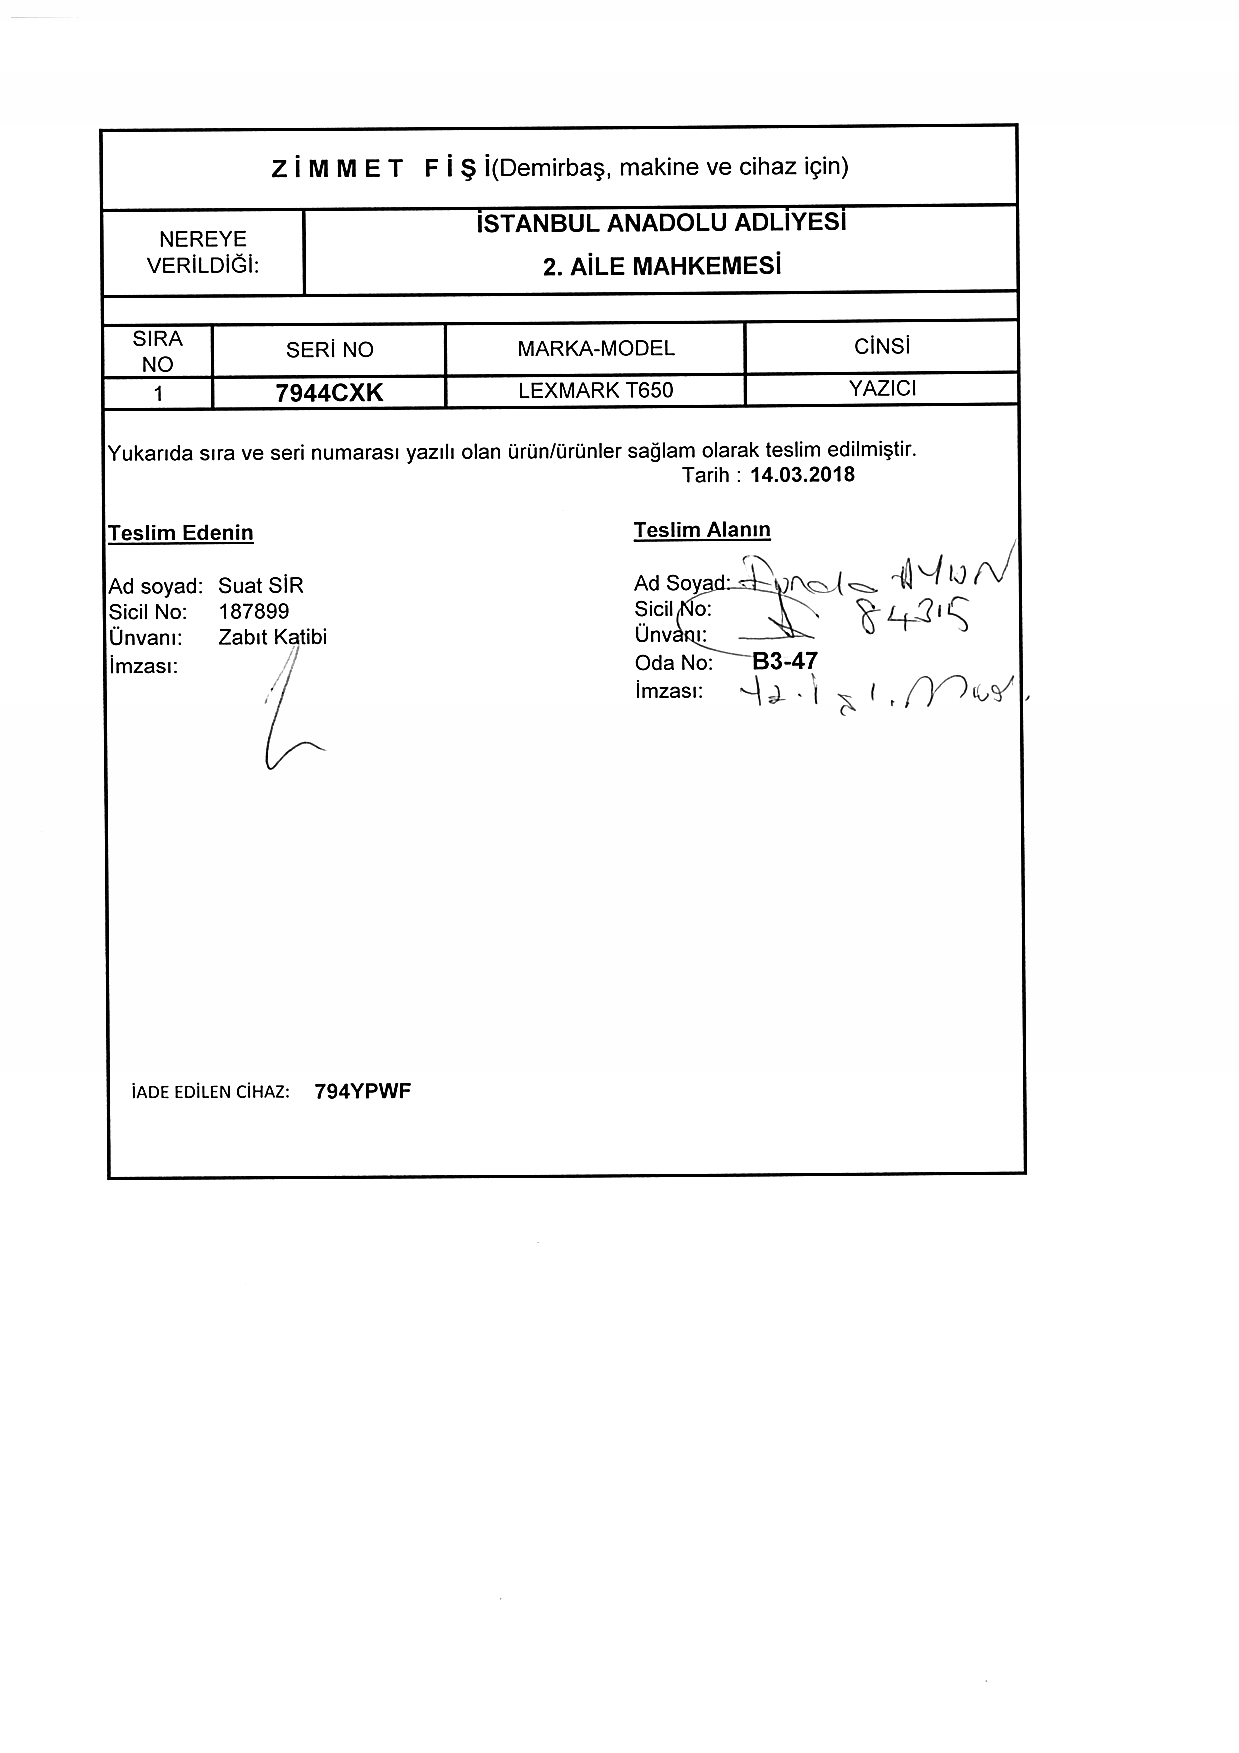 ZİMMET FİŞİ(Demirbaş, makine ve cihaz için)
NEREYE VERİLDİĞİ:
İSTANBUL ANADOLU ADLİYESİ
2. AİLE MAHKEMESİ
SIRA NO SERİ NO MARKA-MODEL CİNSİ
1 7944CXK LEXMARK T650 YAZICI
Yukarıda sıra ve seri numarası yazılı olan ürün/ürünler sağlam olarak teslim edilmiştir.
Tarih : 14.03.2018
Teslim Edenin
Ad soyad: Suat SİR
Sicil No: 187899
Ünvanı: Zabıt Katibi
İmzası:
Teslim Alanın
Ad Soyad: AYDIN
Sicil No: 84315
Ünvanı:
Oda No: B3-47
İmzası:
İADE EDİLEN CİHAZ: 794YPWF